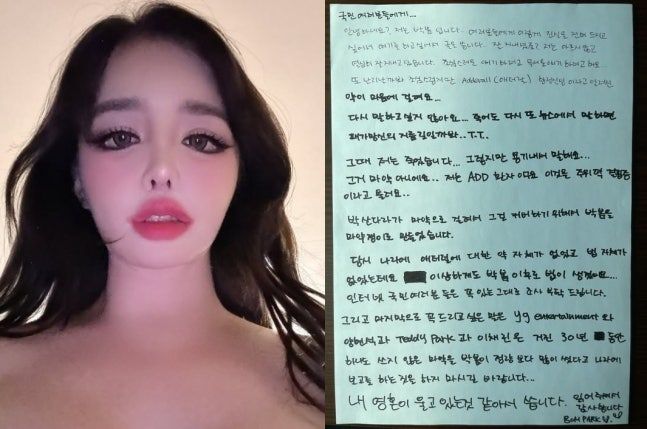 국민 여러분들에게...
안녕하세요? 저는 박봄 입니다. 여러분들에게 이렇게 진심을 전해 드리고
싶어서 얘기를 하고싶어서 글을 씁니다. 잘 지내셨죠? 저는 아프지 않고
열심히 잘 지내고 있습니다. 조심스레 얘기하려고
또 난리날까봐 조심스럽지만 Adderall (애더럴)
약이 마음에 걸려요...
다시 말하고 싶지 않아요... 죽어도 다시 또 뉴스에서 말하면
패가망신의 지름길일까봐..T.T.
그때 저는 죽었습니다... 그렇지만 용기내서 말해요...
그거 마약 아니에요.. 저는 ADD 환자 이며요 이것은 주위력 결핍증
이라고 불려요..
박산다라가 마약으로 걸려서 그걸 커버하기 위해서 박봄을
마약쟁이로 만들었습니다.
당시 나라에 애더럴에 대한 약 자체가 없었고 법 자체가
없었는데요 이상하게도 박봄 이후로 법이 생겼어요...
인터넷 국민여러분들은 꼭 있는그대로 조사 부탁 드립니다.
그리고 마지막으로 꼭 드리고싶은 말은 yg entertainment 와
양현석과 Teddy Park 과 이채린은 거진 30년 동안
하나도 쓰지 않은 마약을 박봄이 정량 보다 많이 썼다고 나라에
보고를 하는것은 하지 마시길 바랍니다...
내 영혼이 울고있는것 같아서 씁니다. 읽어 주셔서
감사합니다
BOM PARK